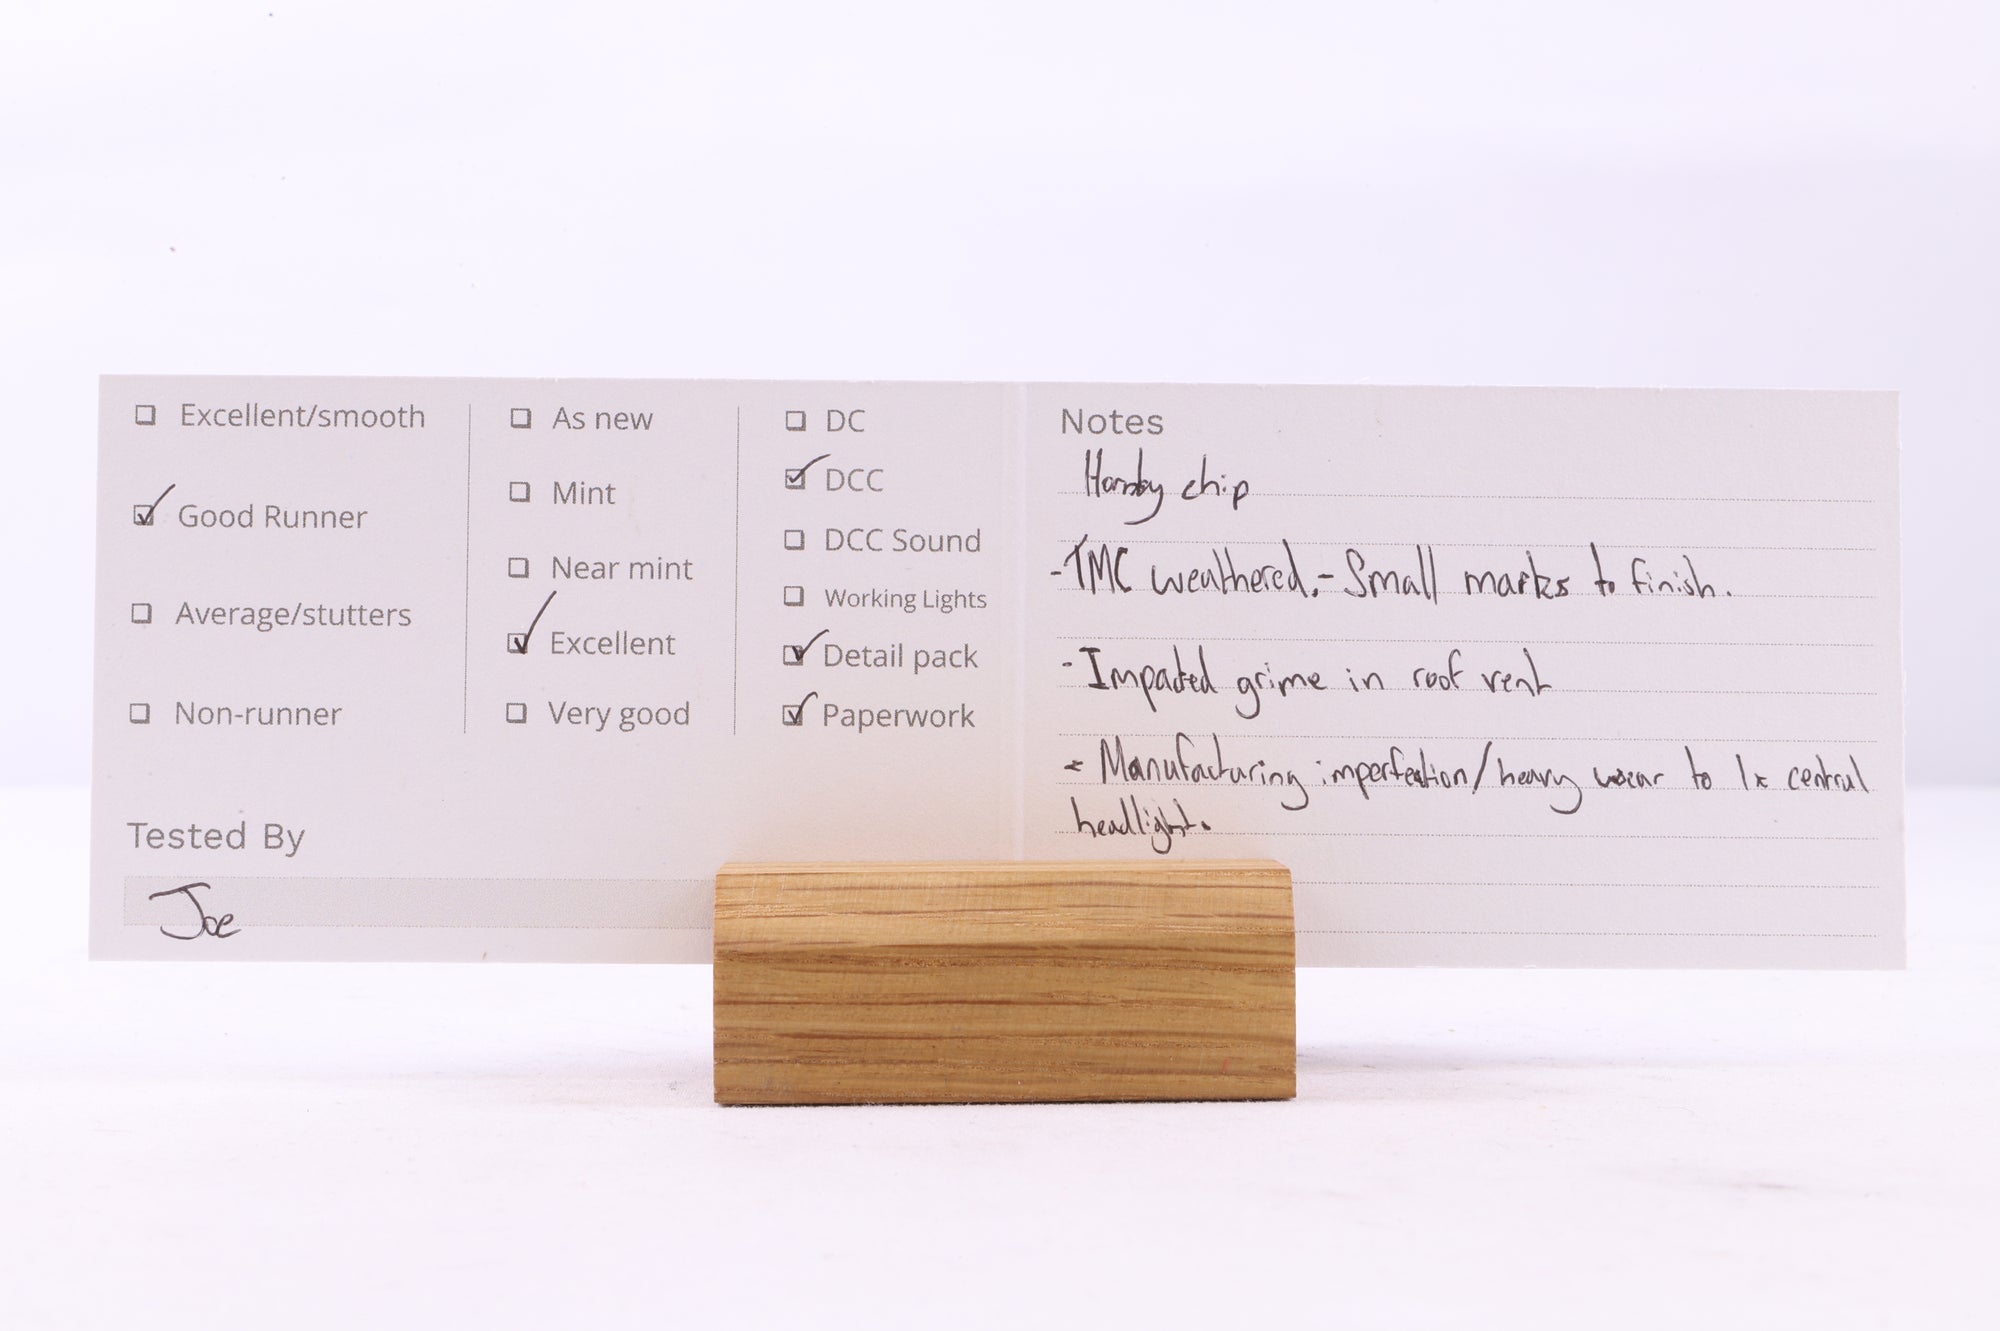 Excellent/smooth
Good Runner
Average/stutters
Non-runner
As new
Mint
Near mint
Excellent
Very good
DC
DCC
DCC Sound
Working Lights
Detail pack
Paperwork
Tested By
Joe
Notes
Hornby chip
-TMC weathered.- Small marks to finish.
-Impacted grime in roof vent
- Manufacturing imperfection/heavy wear to 1x central
headlight.